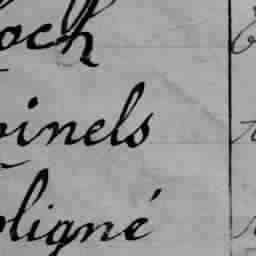 och
inels
oligné